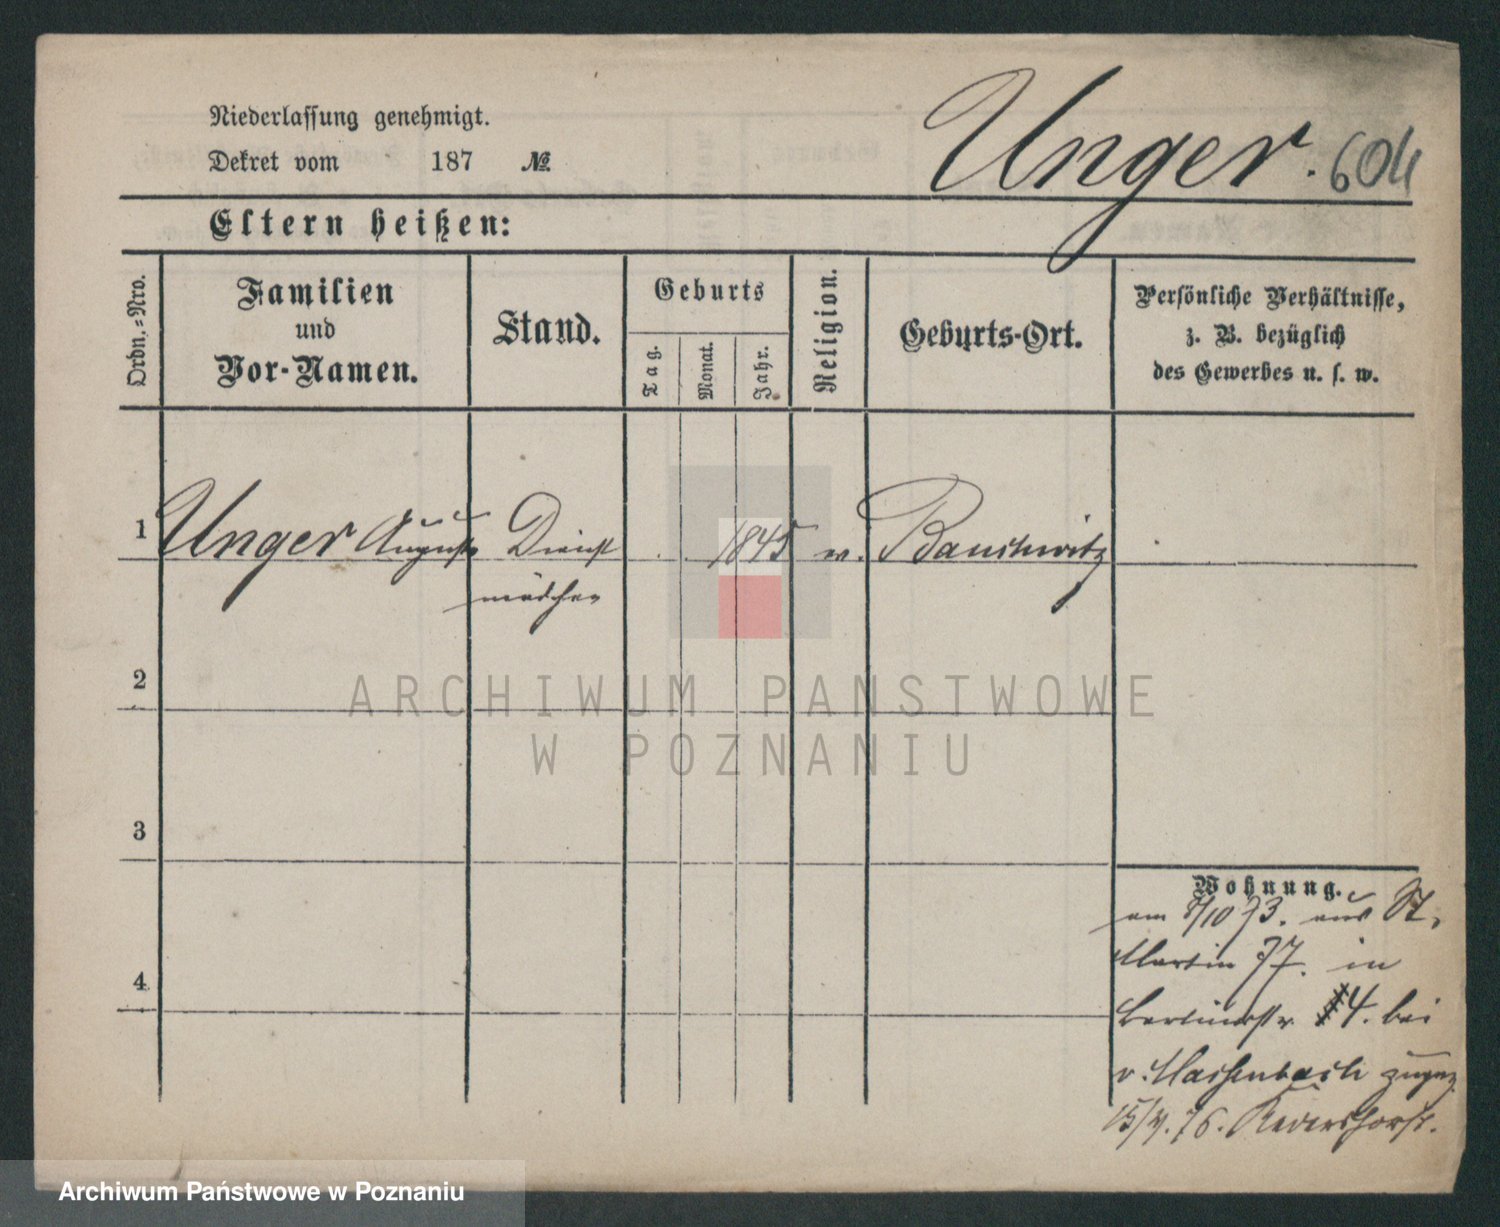 Niederlassung genehmigt.
Dekret vom 187 №
Unger. 604
Eltern heißen:
Ordn.=Nro.
Familien
und
Vor-Namen.
Stand.
Geburts
Tag.
Monat.
Jahr.
Religion.
Geburts-Ort.
Persönliche Verhältnisse,
z. B. bezüglich
des Gewerbes u. s. w.
1 Unger Auguste Dienst 1845 Bauchwitz
mädchen
2
3
4
Wohnung.
am 8/10 73. aus St.
Martin 77. in
Berlinerstr. 4. bei
v. zugez.
15/ 76.
ARCHIWUM PAŃSTWOWE
W POZNANIU
Archiwum Państwowe w Poznaniu